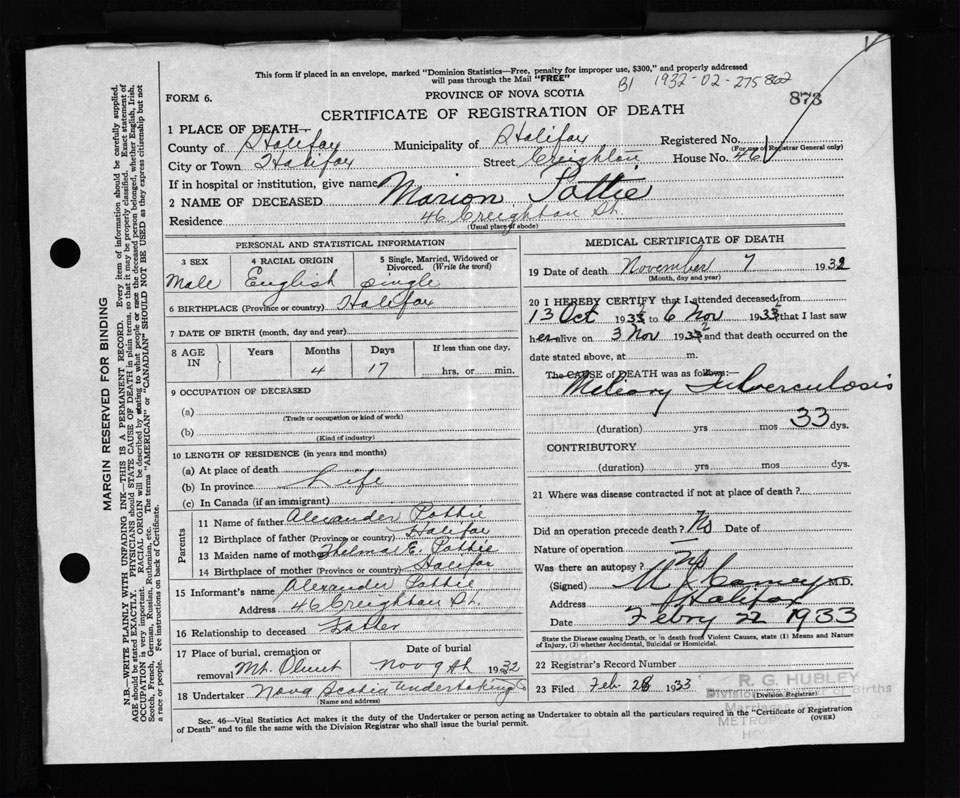 This form if placed in an envelope, marked "Dominion Statistics—Free, penalty for improper use, $300," and properly addressed
will pass through the Mail "FREE"
B1 1932-02-275862
FORM 6.
PROVINCE OF NOVA SCOTIA
873
CERTIFICATE OF REGISTRATION OF DEATH
1 PLACE OF DEATH—
County of Halifax Municipality of Halifax Registered No.
(For use of Registrar General only)
City or Town Halifax Street Creighton House No. 46
If in hospital or institution, give name
2 NAME OF DECEASED Marion Pattie
Residence 46 Creighton St.
(Usual place of abode)
PERSONAL AND STATISTICAL INFORMATION
3 SEX
4 RACIAL ORIGIN
5 Single, Married, Widowed or
Divorced. (Write the word)
Male English single
6 BIRTHPLACE (Province or country) Halifax
7 DATE OF BIRTH (month, day and year)
8 AGE IN
Years Months Days If less than one day,
4 17 hrs. or min.
9 OCCUPATION OF DECEASED
(a)
(Trade or occupation or kind of work)
(b)
(Kind of industry)
10 LENGTH OF RESIDENCE (in years and months)
(a) At place of death
(b) In province Life
(c) In Canada (if an immigrant)
Parents
11 Name of father Alexander Pattie
12 Birthplace of father (Province or country) Halifax
13 Maiden name of mother Thelma E. Pattie
14 Birthplace of mother (Province or country) Halifax
15 Informant's name Alexander Pattie
Address 46 Creighton St.
16 Relationship to deceased Father
17 Place of burial, cremation or Date of burial
removal Mt. Olivet Nov 9th 1932
18 Undertaker Nova Scotia Undertaking
(Name and address)
MEDICAL CERTIFICATE OF DEATH
19 Date of death November 7 1932
(Month, day and year)
20 I HEREBY CERTIFY that I attended deceased from
13 Oct 1932 to 6 Nov 1932 that I last saw
her alive on 3 Nov 1932 and that death occurred on
date stated above, at m.
The CAUSE of DEATH was as follows:—
Miliary Tuberculosis
(duration) yrs mos 33 dys.
CONTRIBUTORY
(duration) yrs mos dys.
21 Where was disease contracted if not at place of death?
Did an operation precede death? No Date of
Nature of operation —
Was there an autopsy? No
(Signed) M.D.
Address Halifax
Date Febry 22 1933
State the Disease causing Death, or in death from Violent Causes, state (1) Means and Nature
of Injury, (2) whether Accidental, Suicidal or Homicidal.
22 Registrar's Record Number
23 Filed Feb. 28 1933
R. G. HUBLEY
Division Registrar of Births
(Division Registrar)
Sec. 46—Vital Statistics Act makes it the duty of the Undertaker or person acting as Undertaker to obtain all the particulars required in the "Certificate of Registration
of Death" and to file the same with the Division Registrar who shall issue the burial permit.
(OVER)
MARGIN RESERVED FOR BINDING
N.B.—WRITE PLAINLY WITH UNFADING INK—THIS IS A PERMANENT RECORD. Every item of information should be carefully supplied.
AGE should be stated EXACTLY. PHYSICIANS should STATE CAUSE OF DEATH in plain terms, so that it may be properly classified. Exact statement of
OCCUPATION is very important. RACIAL ORIGIN will be described by stating to what people or race the deceased person belonged, whether English, Irish,
Scotch, French, German, Russian, Ruthenian, etc. The terms "AMERICAN" or "CANADIAN" SHOULD NOT BE USED as they express citizenship but not
a race or people. Fee instructions on back of Certificate.